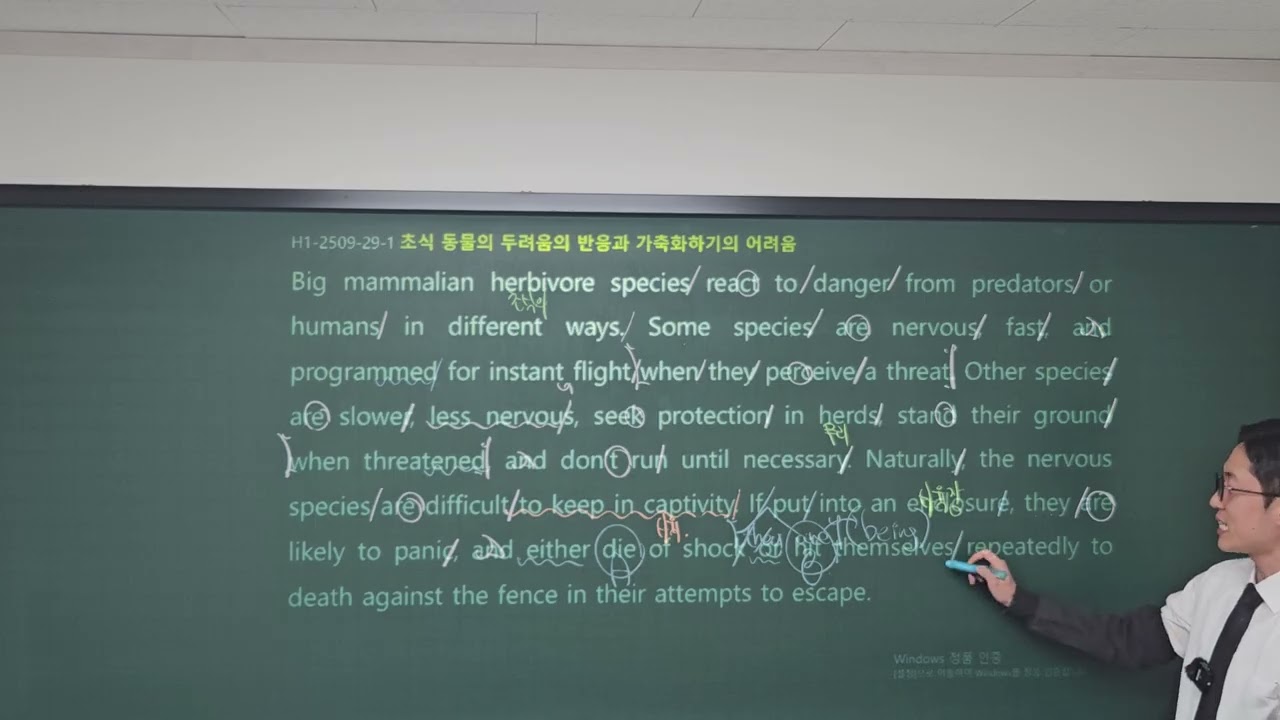 H1-2509-29-1 초식 동물의 두려움의 반응과 가축화하기의 어려움
Big mammalian herbivore species react to danger from predators or
초식의
humans in different ways. Some species are nervous, fast, and
programmed for instant flight when they perceive a threat. Other species
are slower, less nervous, seek protection in herds, stand their ground
무리
when threatened, and don't run until necessary. Naturally, the nervous
species are difficult to keep in captivity. If put into an enclosure, they are
(they are) (being)
likely to panic, and either die of shock or hit themselves repeatedly to
death against the fence in their attempts to escape.
Windows 정품 인증